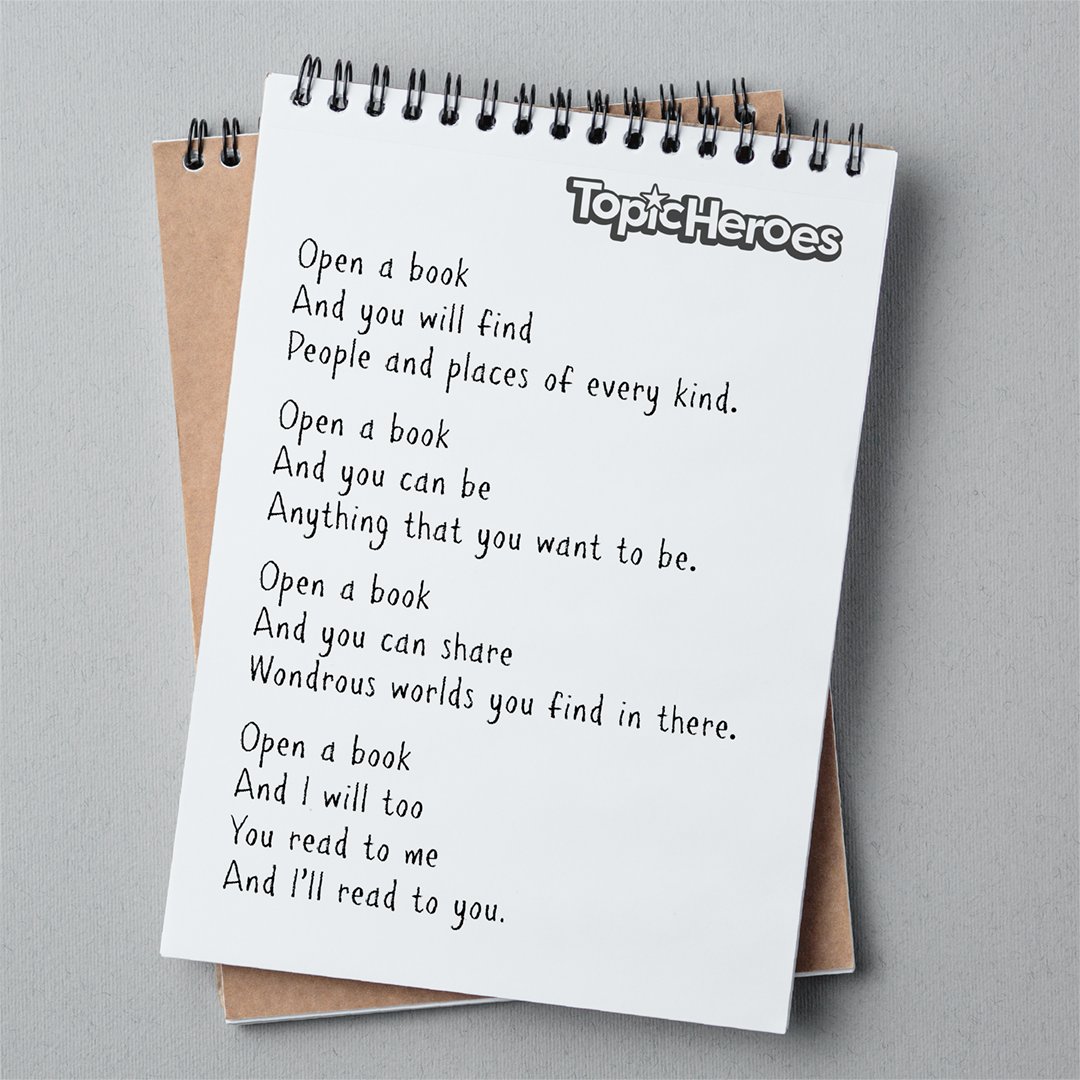 TopicHeroes
Open a book
And you will find
People and places of every kind.
Open a book
And you can be
Anything that you want to be.
Open a book
And you can share
Wondrous worlds you find in there.
Open a book
And I will too
You read to me
And I'll read to you.